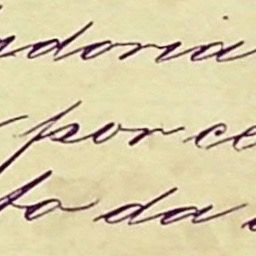 adoria
por ce
to da